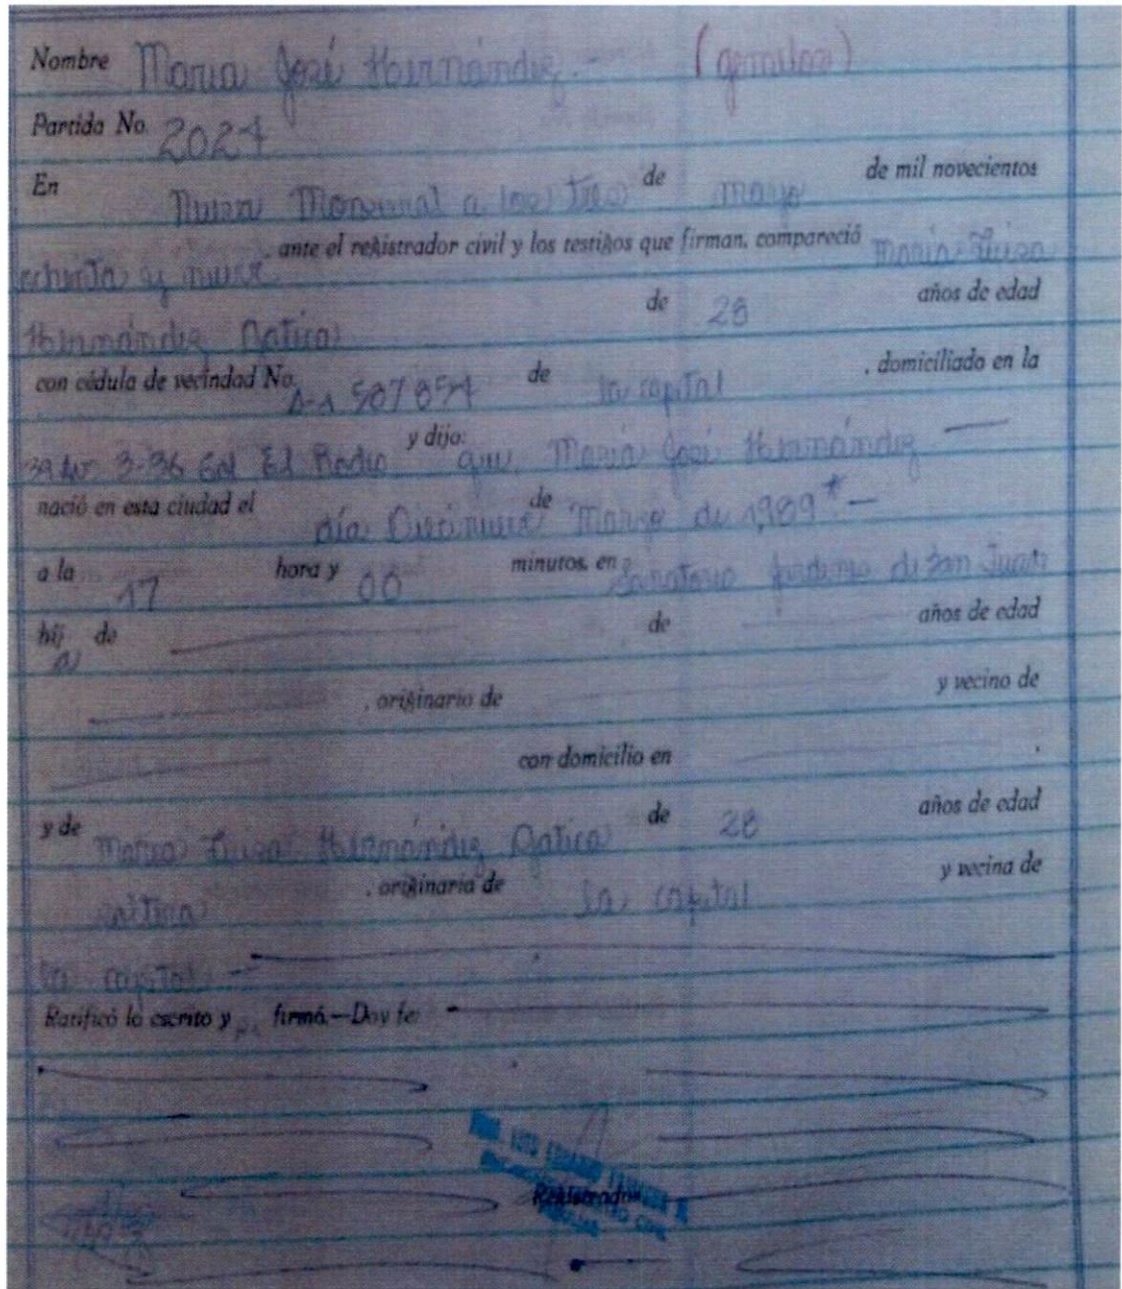 Nombre María José Hernández.- (gemelas)
Partida No. 2024
En Mixco Monserrat a los tres de mayo de mil novecientos
ochenta y nueve ante el registrador civil y los testigos que firman, compareció María Luisa
Hernández Gatica de 28 años de edad
con cédula de vecindad No. de la capital , domiciliado en la
3-36 Col El Rodeo y dijo: que, María José Hernández
nació en esta ciudad el día Diecinueve de Marzo de 1,989 *-
a la 17 hora y 00 minutos, en Sanatorio Jardines de San Juan
hij a de de años de edad
, originario de y vecino de
con domicilio en .
y de María Luisa Hernández Gatica de 28 años de edad
soltera , originaria de la capital y vecina de
la capital -
Ratificó lo escrito y firmó.—Doy fe:
Registrador